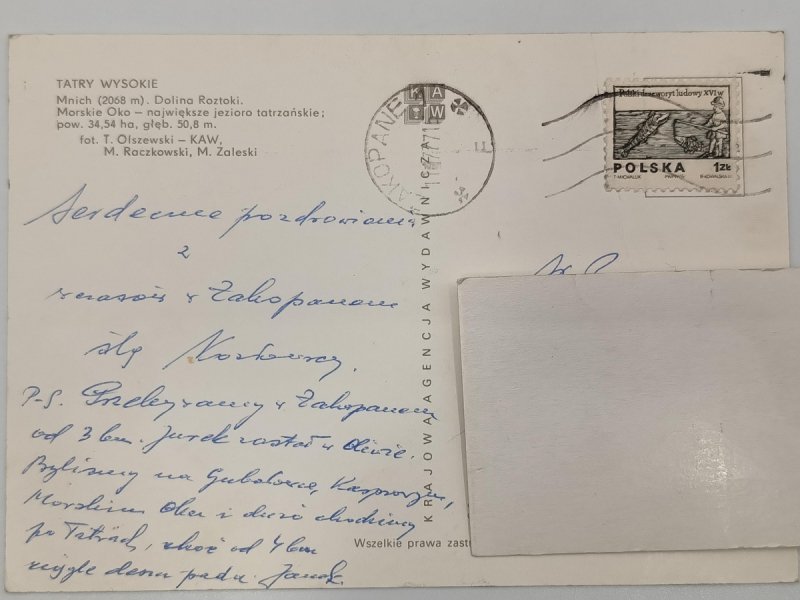 TATRY WYSOKIE
Mnich (2068 m). Dolina Roztoki.
Morskie Oko – największe jezioro tatrzańskie;
pow. 34,54 ha, głęb. 50,8 m.
fot. T. Olszewski – KAW,
M. Raczkowski, M. Zaleski
KAW
ZAKOPANE
Polski drzeworyt ludowy XVI w
POLSKA 1ZŁ
Serdeczne pozdrowienia
z
wczasów w Zakopanem
ślą
P.S. Przebywamy w Zakopanem
od 3 bm. Jurek został w Oliwie.
Byliśmy na Gubałówce, Kasprowym,
Morskim Oku i dużo chodzimy
po Tatrach, choć od 4 bm
ciągle deszcz pada. Janek.
KRAJOWA AGENCJA WYDAWNICZA
Wszelkie prawa zast